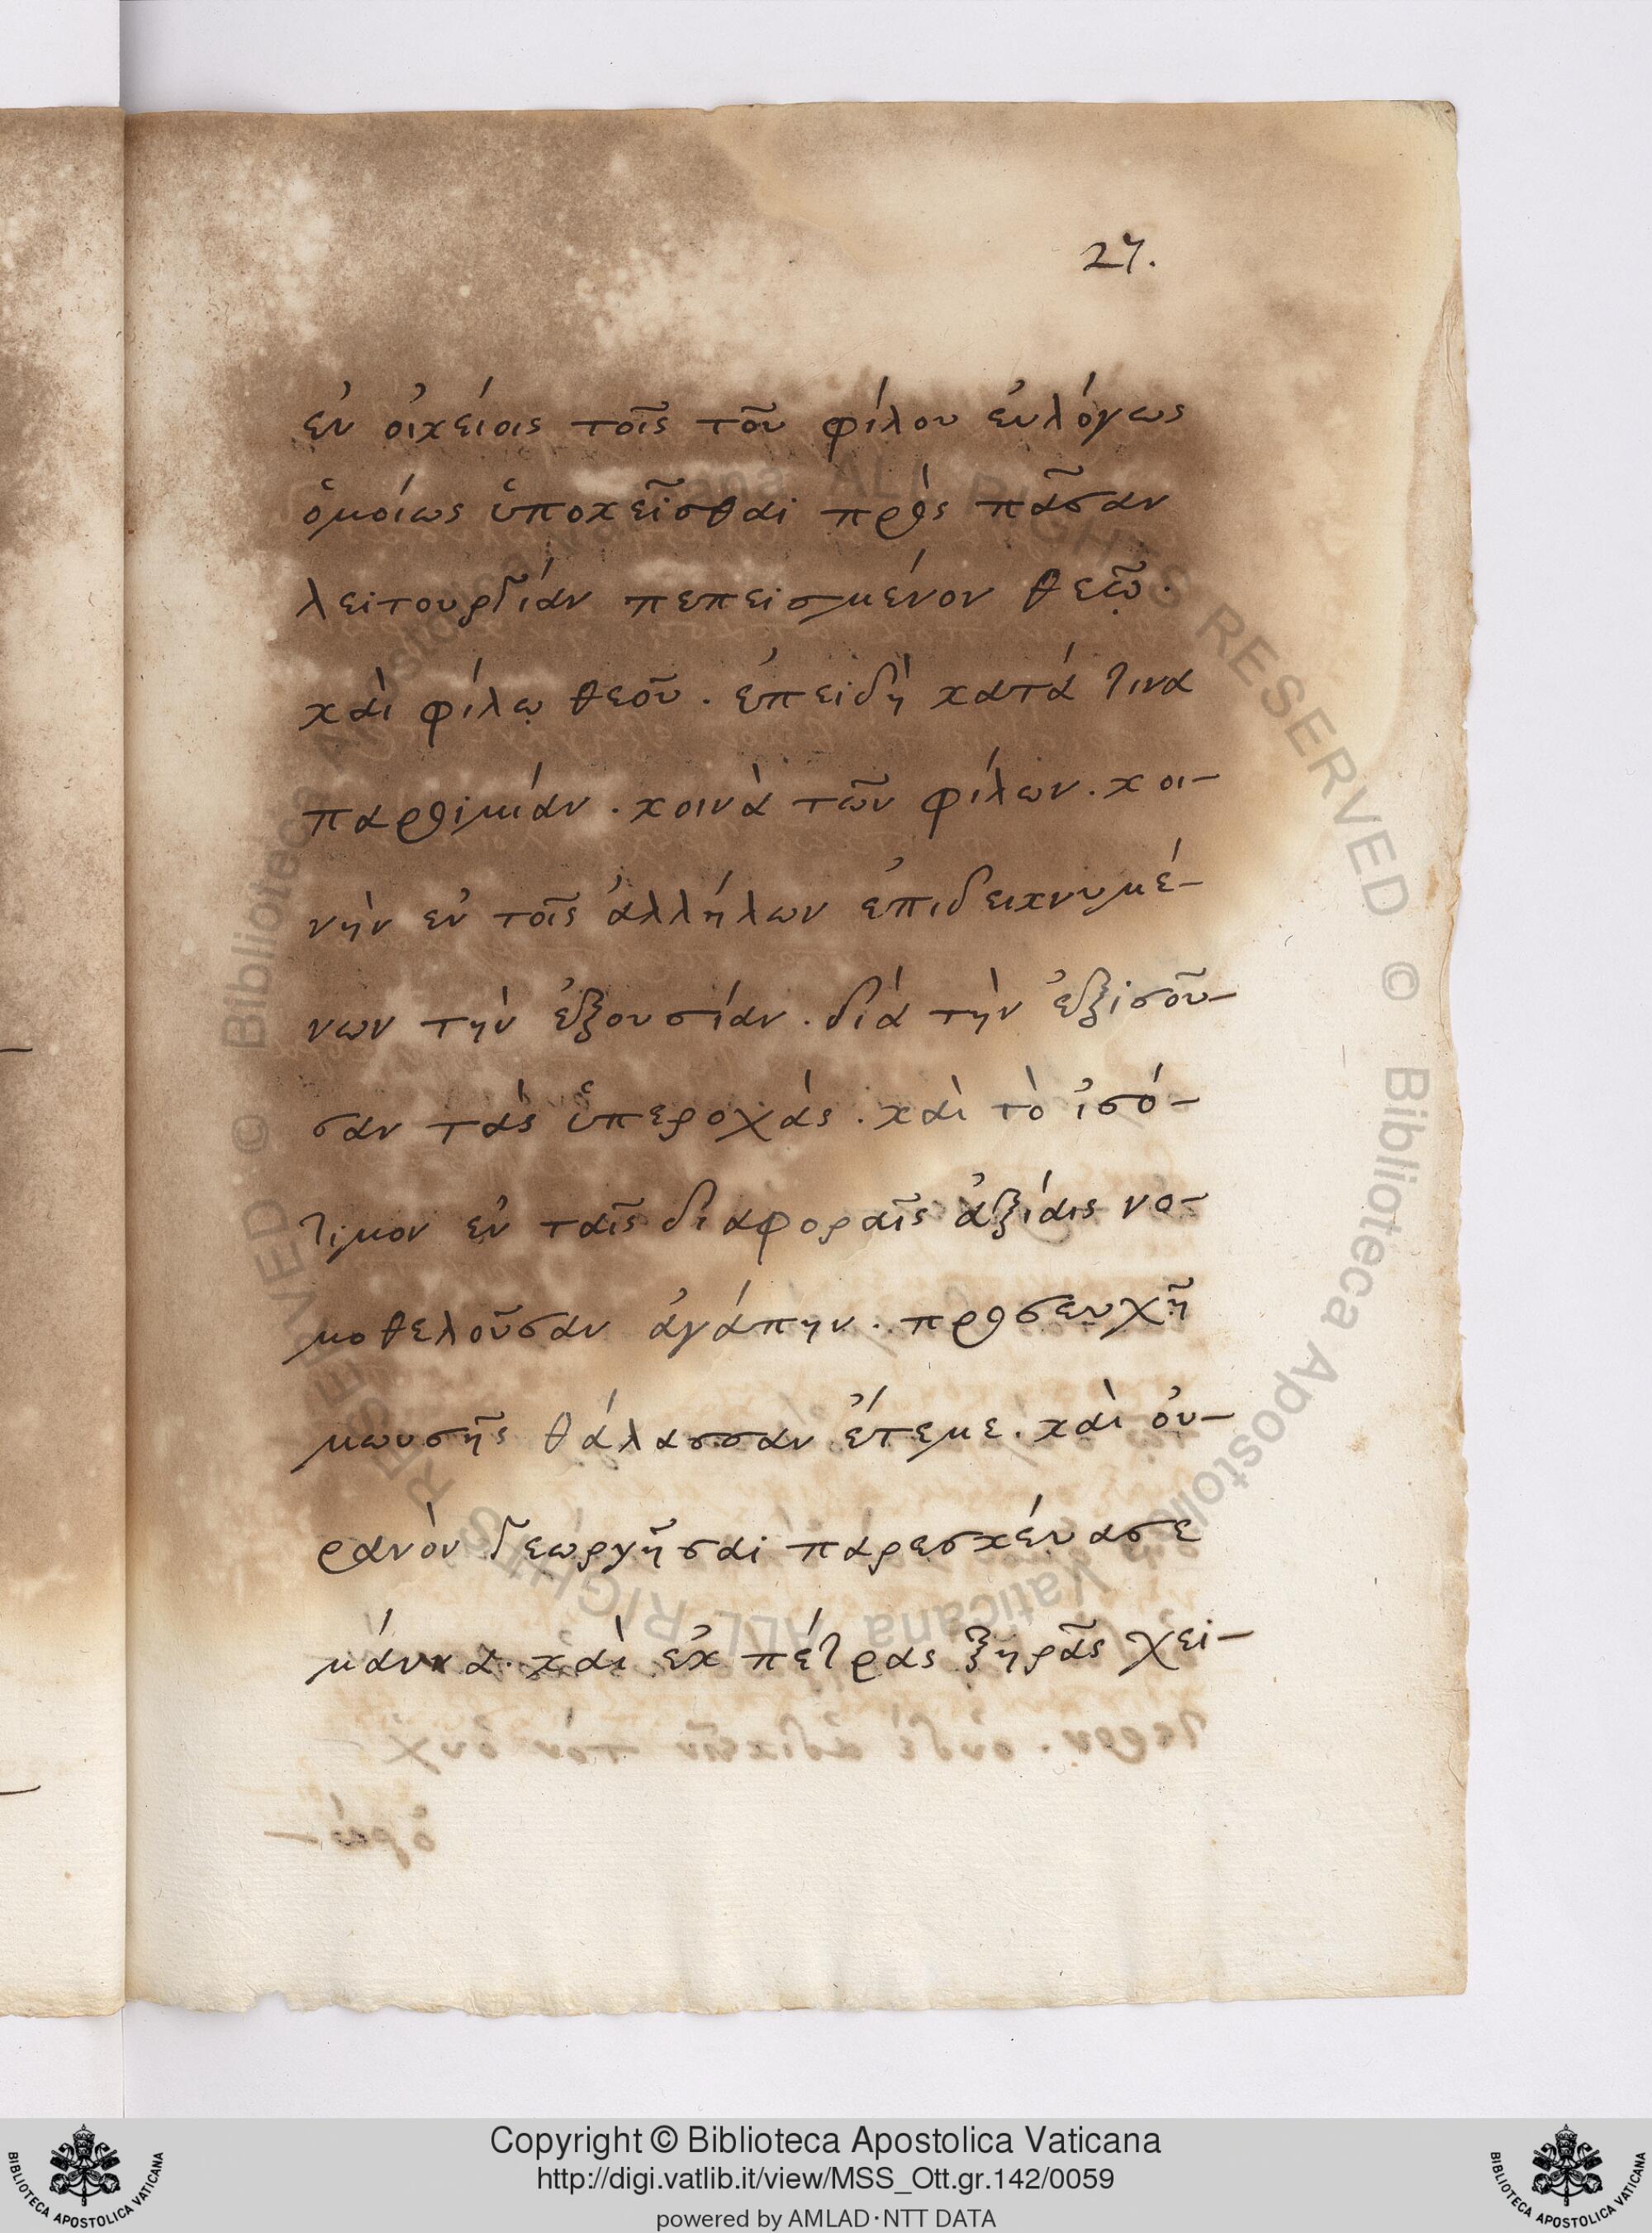 27.
ἐν οἰκείοις τοῖς τοῦ φίλου εὐλόγως
ὁμοίως ὑποκεῖσθαι πρὸς πᾶσαν
λειτουργίαν πεπεισμένον θεῷ.
καὶ φίλῳ θεοῦ. ἐπειδὴ κατά τινα
παροιμίαν. κοινὰ τῶν φίλων. κοι-
νὴν ἐν τοῖς ἀλλήλων ἐπιδεικνυμέ-
νων τὴν ἐξουσίαν. διὰ τὴν ἐξισοῦ-
σαν τὰς ὑπεροχάς. καὶ τὸ ἰσό-
τιμον ἐν ταῖς διαφοραῖς ἀξίαις νο-
μοθελοῦσαν ἀγάπην. προσευχῇ
μωυσῆς θάλασσαν ἔτεμε. καὶ οὐ-
ρανὸν γεωργῆσαι παρεσκεύασε
μάννα. καὶ ἐκ πέτρας ξηρᾶς χεί-
Copyright © Biblioteca Apostolica Vaticana
http://digi.vatlib.it/view/MSS_Ott.gr.142/0059
powered by AMLAD·NTT DATA
BIBLIOTECA APOSTOLICA VATICANA
BIBLIOTECA APOSTOLICA VATICANA
© Biblioteca Apostolica Vaticana ALL RIGHTS RESERVED
© Biblioteca Apostolica Vaticana ALL RIGHTS RESERVED